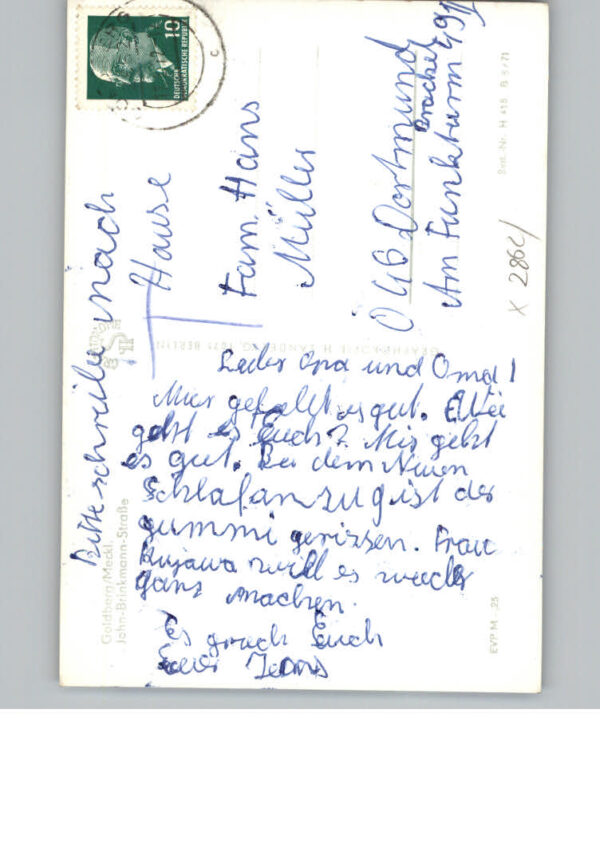 Lieber Opa und Oma!
Mir gefält es gut. Wie
geht es Euch? Mir geht
es gut. Bei dem Neuen
Schlafanzug ist der
gummi gerissen. Frau
Kujawa will es wieder
ganz machen.
Es grach Euch
Euer Jens
Bitte schreiben nach
Hause
Fam. Hans
Müller
046 Dortmund
Brackel
Am Funkturm
X 286c/
10
DEUTSCHE
DEMOKRATISCHE REPUBLIK
GRAPHOKOPIE H. SANDER KG, 1071 BERLIN
Goldberg/Meckl.
John-Brinkmann-Straße
EVP M -,25
Best.-Nr. H 418 B 8/71